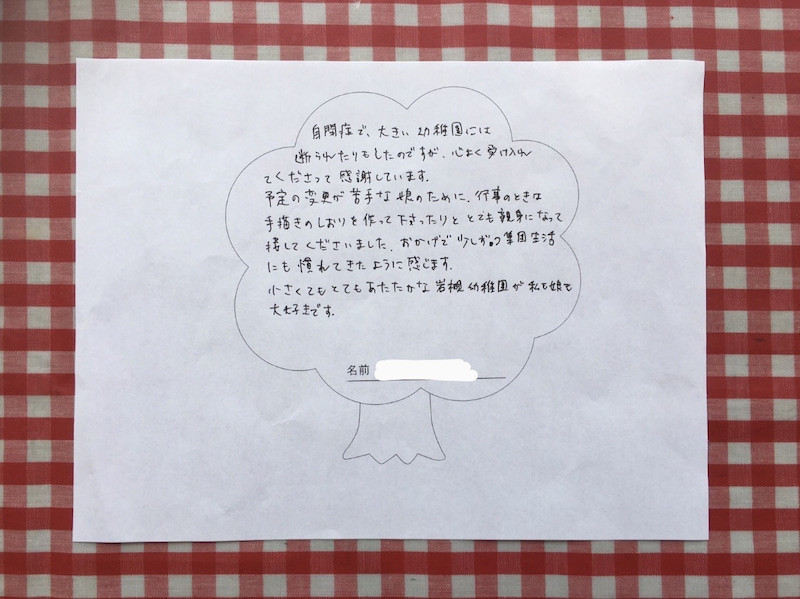 自閉症で、大きい幼稚園には
断られたりもしたのですが、心よく受け入れ
てくださって感謝しています。
予定の変更が苦手な娘のために、行事のときは
手描きのしおりを作って下さったりと とても親身になって
接してくださいました。おかげで少しずつ集団生活
にも慣れてきたように感じます。
小さくてもとてもあたたかな岩槻幼稚園が私も娘も
大好きです。
名前